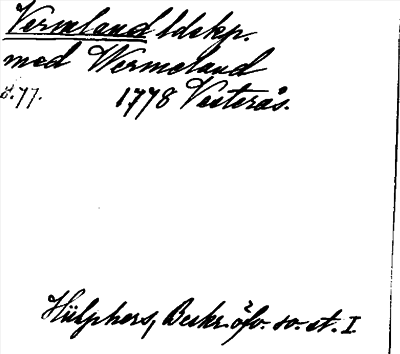 Vermland ldskp.
med Wermeland
s. 77. 1778 Vesterås.
Hülphers, Beskr. öfv. so. st. I